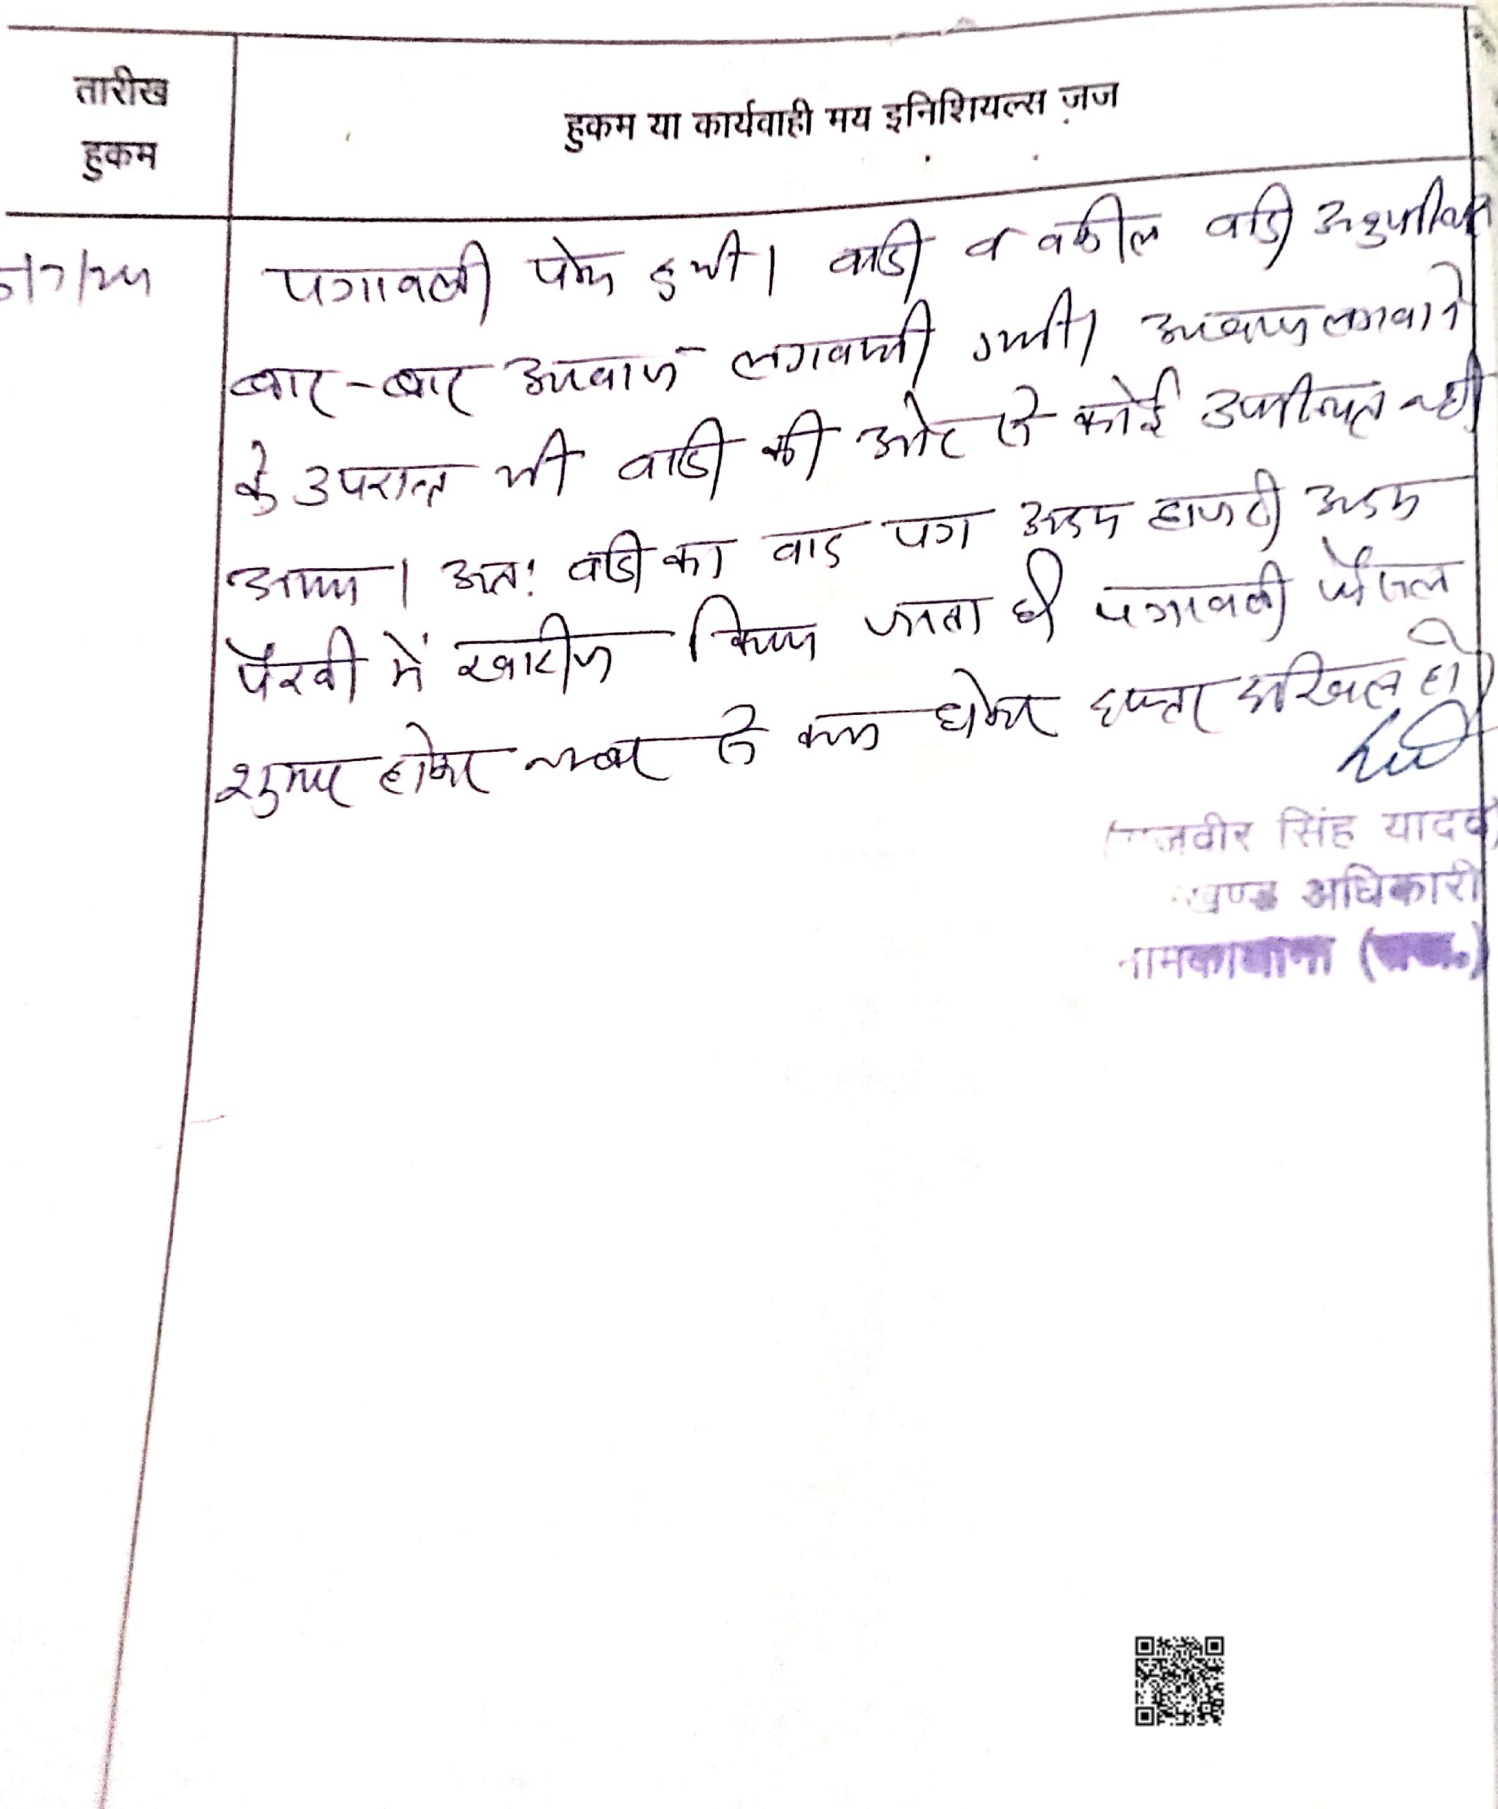 तारीख
हुकम
हुकम या कार्यवाही मय इनिशियल्स जज
पत्रावली पेश हुयी। वादी व वकील वादी अनुपस्थित
बार-बार आवाज लगवायी गयी। आवाज लगवाने
के उपरान्त भी वादी की ओर से कोई उपस्थित नही
आया। अत: वादी का वाद पत्र अदम हाजरी अदम
पैरवी में खारीज किया जाता है। पत्रावली फैसल
शुमार होकर नम्बर से कम होकर दफ्तर दाखिल हो।
जवीर सिंह यादव)
खण्ड अधिकारी